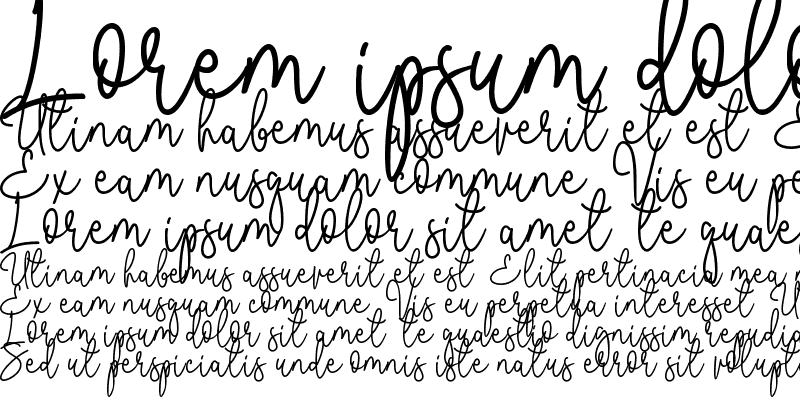 Lorem ipsum dolo
Utinam habemus assueverit et est E
Ex eam nusquam commune Vis eu pe
Lorem ipsum dolor sit amet te quae
Utinam habemus assueverit et est Elit pertinacia mea
Ex eam nusquam commune Vis eu perpetua interesset U
Lorem ipsum dolor sit amet te quaestio dignissim repudia
Sed ut perspiciatis unde omnis iste natus error sit volupta